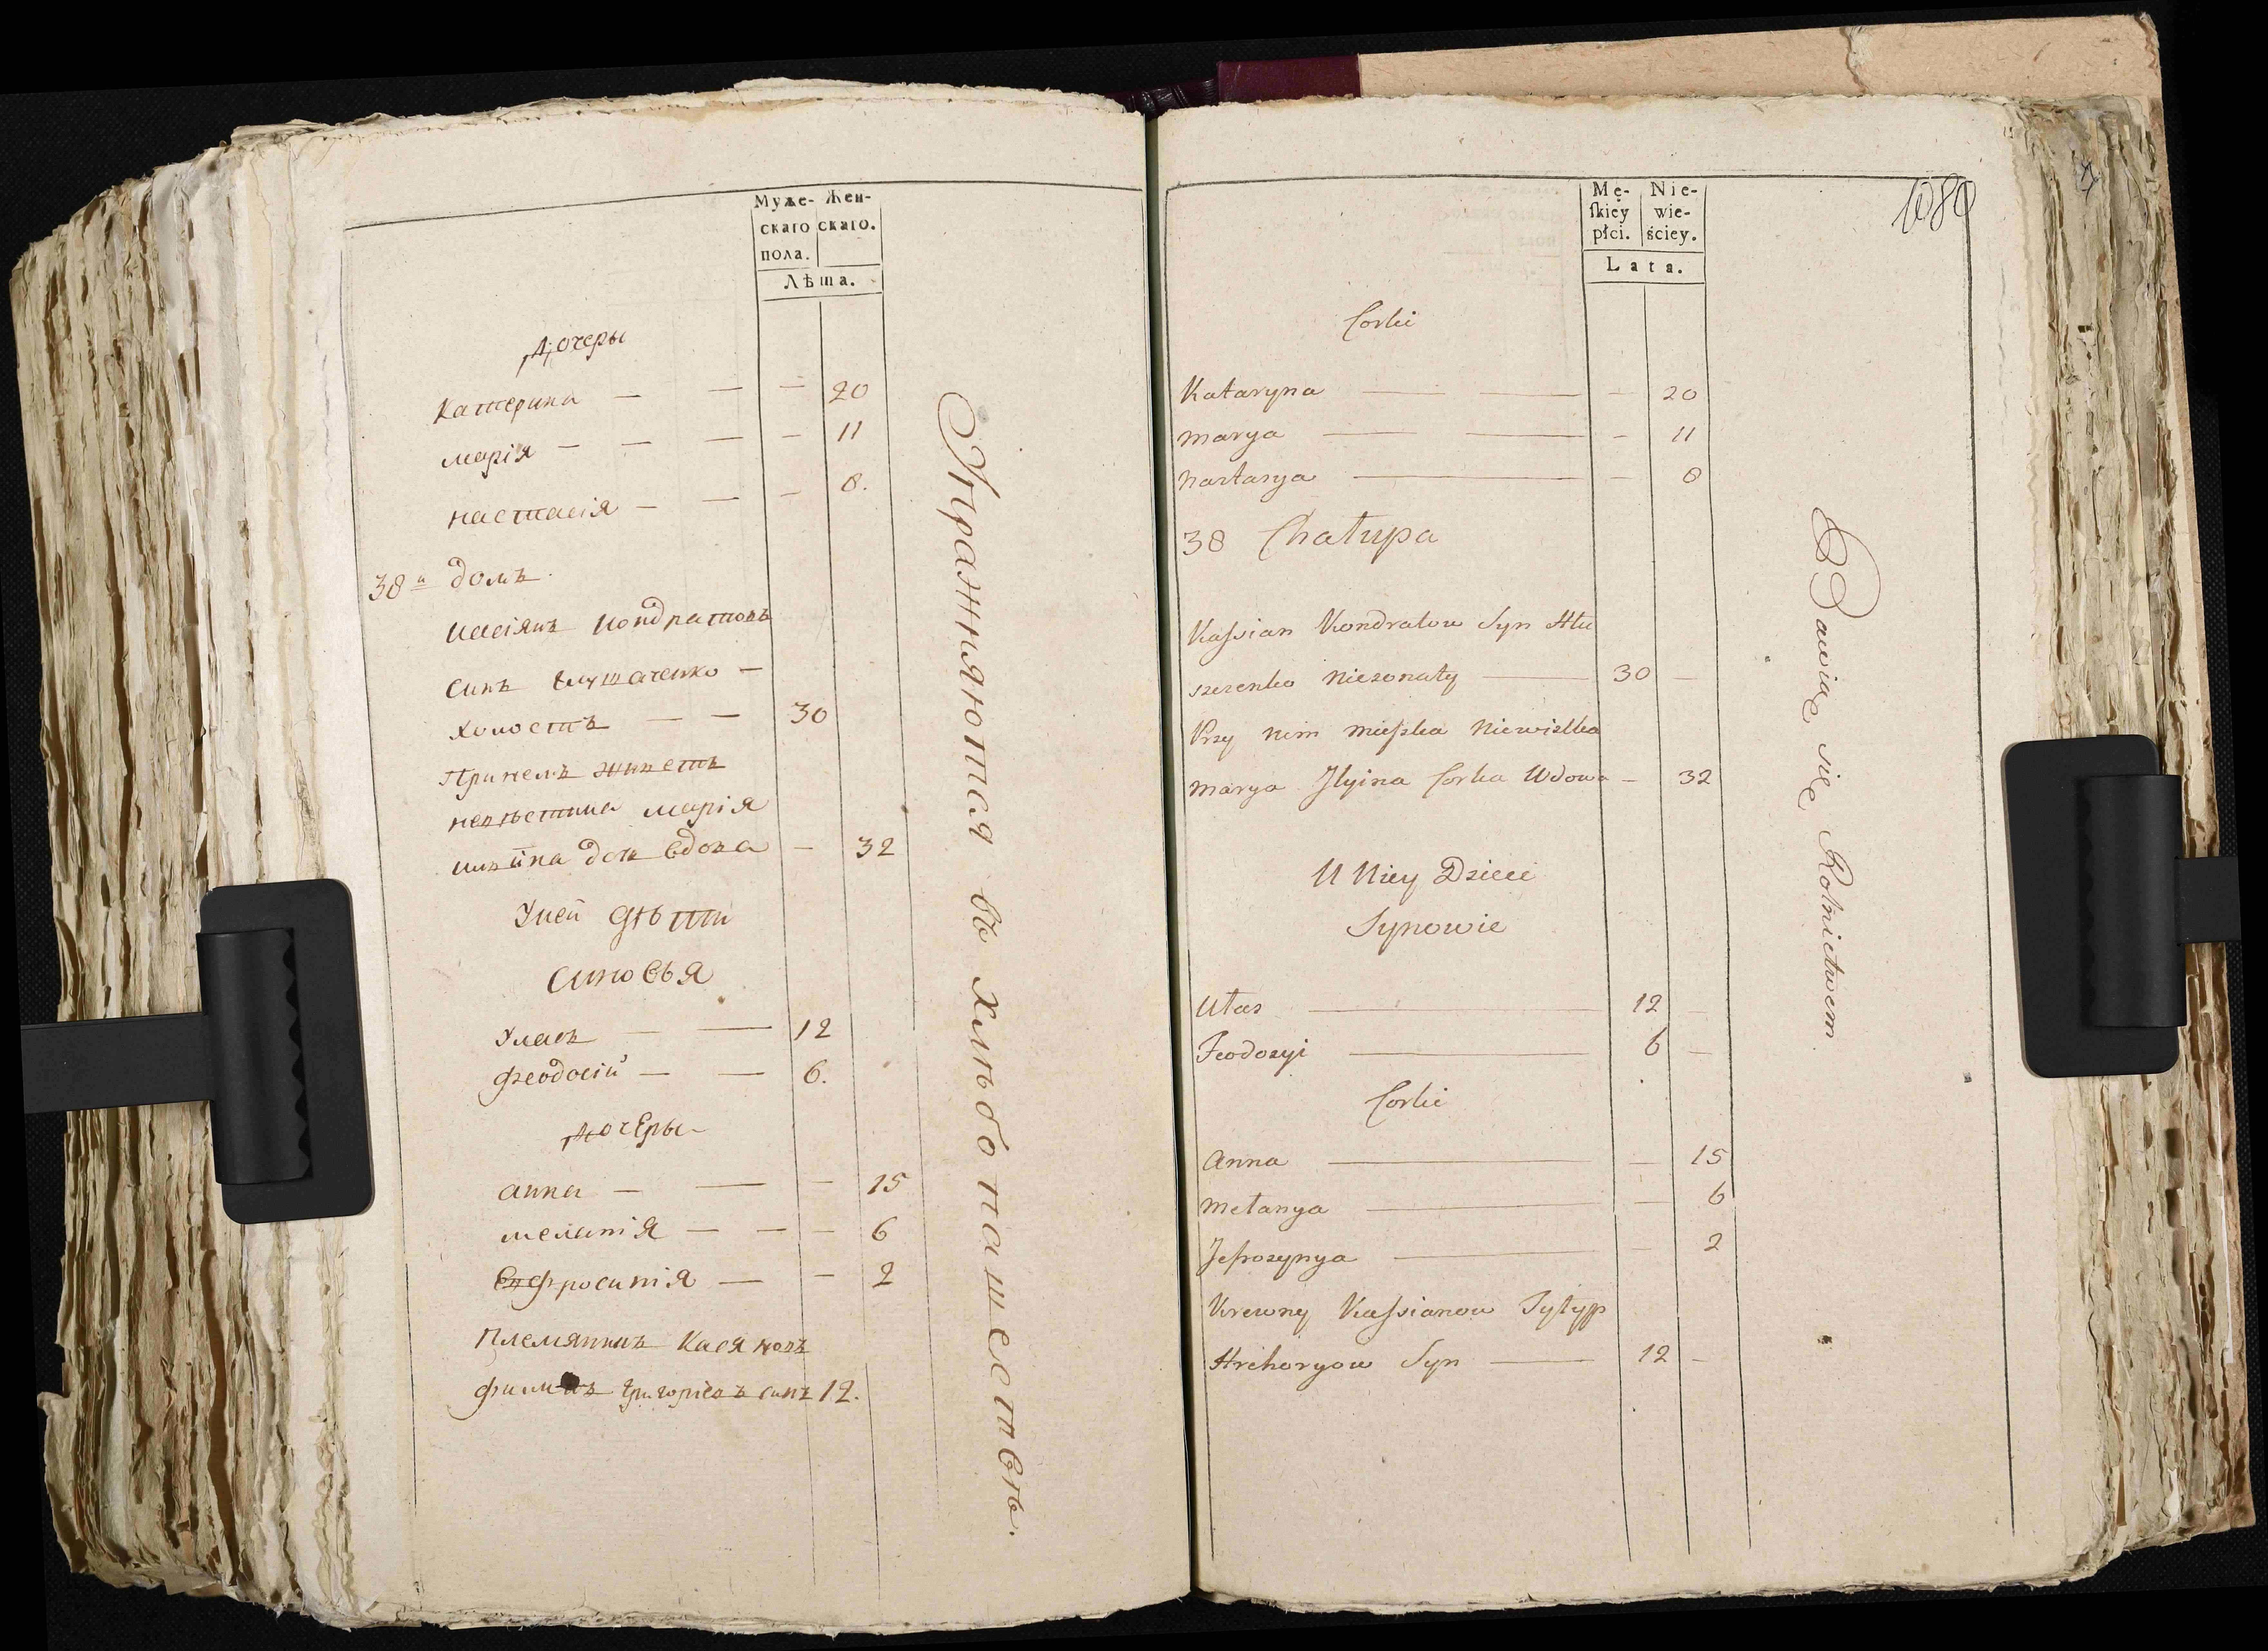 Муже- Жен-
скаго скаго.
пола.
Лѣта.
Дочеры
Катерина — — — 20
марія — — — — 11
настасія — — — 8.
38 й домъ.
Касіянъ Кондратовъ
синъ Глушаченко —
холостъ — — 30
При немъ живетъ
невѣстка марія
илъина дочь вдова — 32
У ней дѣти
Синовья
Уласъ — — 12
феодосій — — 6.
Дочеры
анна — — — 15
меланія — — — 6
Евфросинія — — 2
Племянникъ Касяновъ
григоріевъ синъ 12.
Упражняются въ хлѣбопашествѣ.
1080
Mę- Nie-
skiey wie-
płci. ściey.
Lata.
Corki
Kataryna — — — 20
Marya — — — 11
Nastasya — — 8
38 Chałupa
Kassian Kondratow Syn Hłu
szczenko Niezonaty — 30 —
Przy nim mieszka Niewistka
Marya Jlyina Corka Wdowa — 32
U Niey Dzieci
Synowie
Ułas — 12 —
Feodozyi — 6 —
Corki
Anna — — 15
Mełanya — — 6
Jefrozynya — — 2
Krewny Kassianow Fyłyp
Hrehoryow Syn — 12 —
Bawią się Rolnictwem